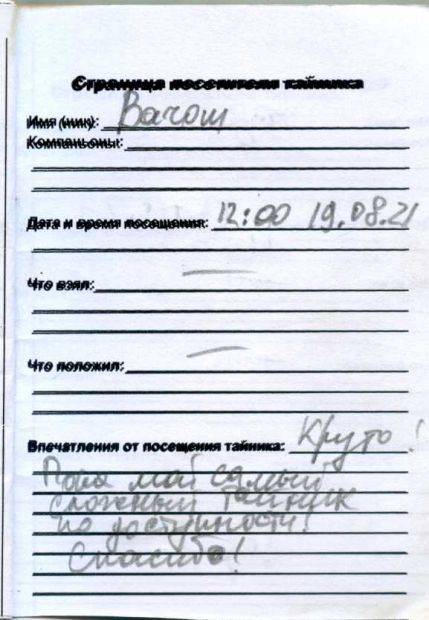 Страница посетителя тайника
Имя (ник): Вачош
Компаньоны:
Дата и время посещения: 12:00 19.08.21
Что взял: —
Что положил: —
Впечатления от посещения тайника: Круто!
Пока мой самый
сложный тайник
по доступности!
Спасибо!